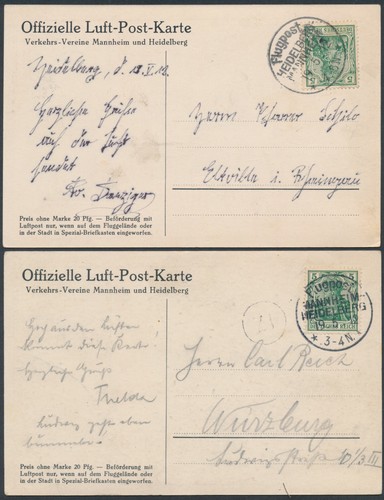 Offizielle Luft-Post-Karte
Verkehrs-Vereine Mannheim und Heidelberg
Heidelberg, d. 19.V.12.
Herzliche Grüße
aus der Luft
sendet
Flugpost
HEIDELBERG
5
Herrn Pfarrer
Eltville i. Rheingau
Preis ohne Marke 20 Pfg. — Beförderung mit
Luftpost nur, wenn auf dem Fluggelände oder
in der Stadt in Spezial-Briefkasten eingeworfen.
Offizielle Luft-Post-Karte
Verkehrs-Vereine Mannheim und Heidelberg
aus den Lüften
kommt diese Karte!
Herzliche Grüße
Ludwig geht eben
5
FLUGPOST
MANNHEIM-
HEIDELBERG
* 3-4N.
Herrn Carl Reich
Würzburg
Ludwigstraße
Preis ohne Marke 20 Pfg. — Beförderung mit
Luftpost nur, wenn auf dem Fluggelände oder
in der Stadt in Spezial-Briefkasten eingeworfen.